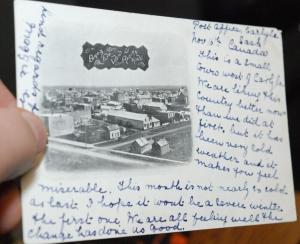 Post Office, Carlyle
Sask
Nov 5th Canada
This is a small
town west of Carlyle
We are liking this
Country better now
than we did at
first, but it has
been very cold
weather and it
makes you feel
miserable. This month is not nearly so cold
as last. I hope it wont be a severe winter
the first one, We are all feeling well the
change has done us good.
Kind regards to